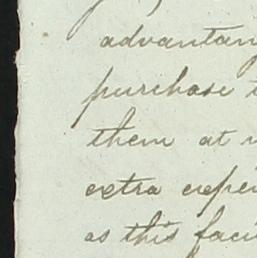 advantan
purchase t
them at
extra expen
as this faci